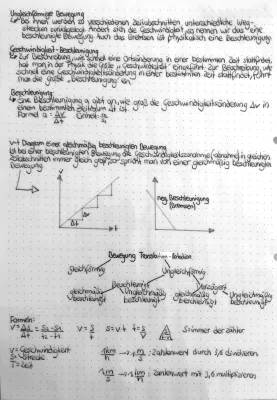 Ungleichförmige Bewegung
↳ Bei ihnen werden zu verschiedenen Zeitabschnitten unterschiedliche Weg-
strecken zurückgelegt. Ändert sich die Geschwindigkeit so nennen wir das eine
beschleunigte Bewegung. Auch das Bremsen ist physikalisch eine Beschleunigung.
Geschwindigkeit - Beschleunigung
↳ Zur Beschreibung, wie schnell eine Ortsänderung in einer bestimmten Zeit stattfindet,
hat man in der Physik die Größe „Geschwindigkeit" eingeführt. Zur Beschreibung, wie
schnell eine Geschwindigkeitsänderung in einer bestimmten Zeit stattfindet, führt
man die Größe „Beschleunigung" ein.
Beschleunigung:
↳ Eine Beschleunigung a gibt an, wie groß die Geschwindigkeitsänderung Δv in
einem bestimmten Zeitraum Δt ist.
Formel a = Δv/Δt Einheit:
v-t Diagram einer gleichmäßig beschleunigten Bewegung
Ist bei einer beschleunigten Bewegung die Geschwindigkeitszunahme (abnahme) in gleichen
Zeitabschnitten immer gleich groß, so spricht man von einer gleichmäßig beschleunigten
Bewegung.
v
v
neg. Beschleunigung
(Bremsen)
Δv
Δt
t
t
Bewegung Translation - Rotation
gleichförmig Ungleichförmig
Beschleunigt Verzögert
gleichmäßig beschleunigt Ungleichmäßig beschleunigt gleichmäßig beschleunigt Ungleichmäßig beschleunigt
Formeln:
v = Δs/Δt = s2-s1/t2-t1 v = s/t s = v·t t = s/v S immer der Zähler
v = Geschwindigkeit
s = Strecke
t = Zeit
1 km/h → m/s : Zahlenwert durch 3,6 dividieren
1 m/s → km/h : Zahlenwert mit 3,6 multiplizieren